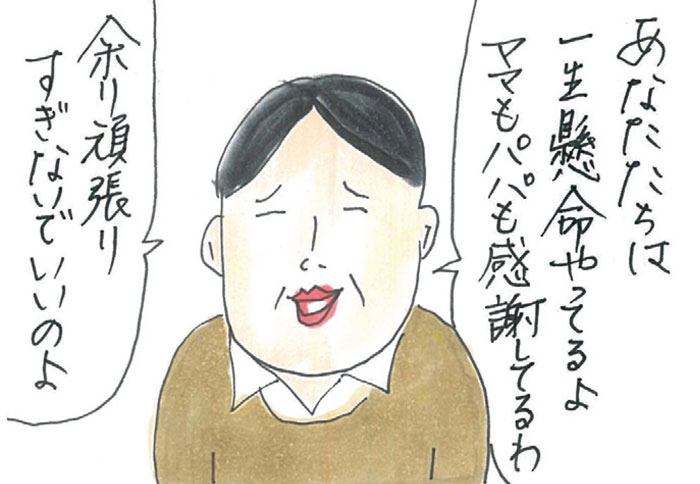 あなたたちは
一生懸命やってるよ
ママもパパも感謝してるわ
余り頑張り
すぎないでいいのよ